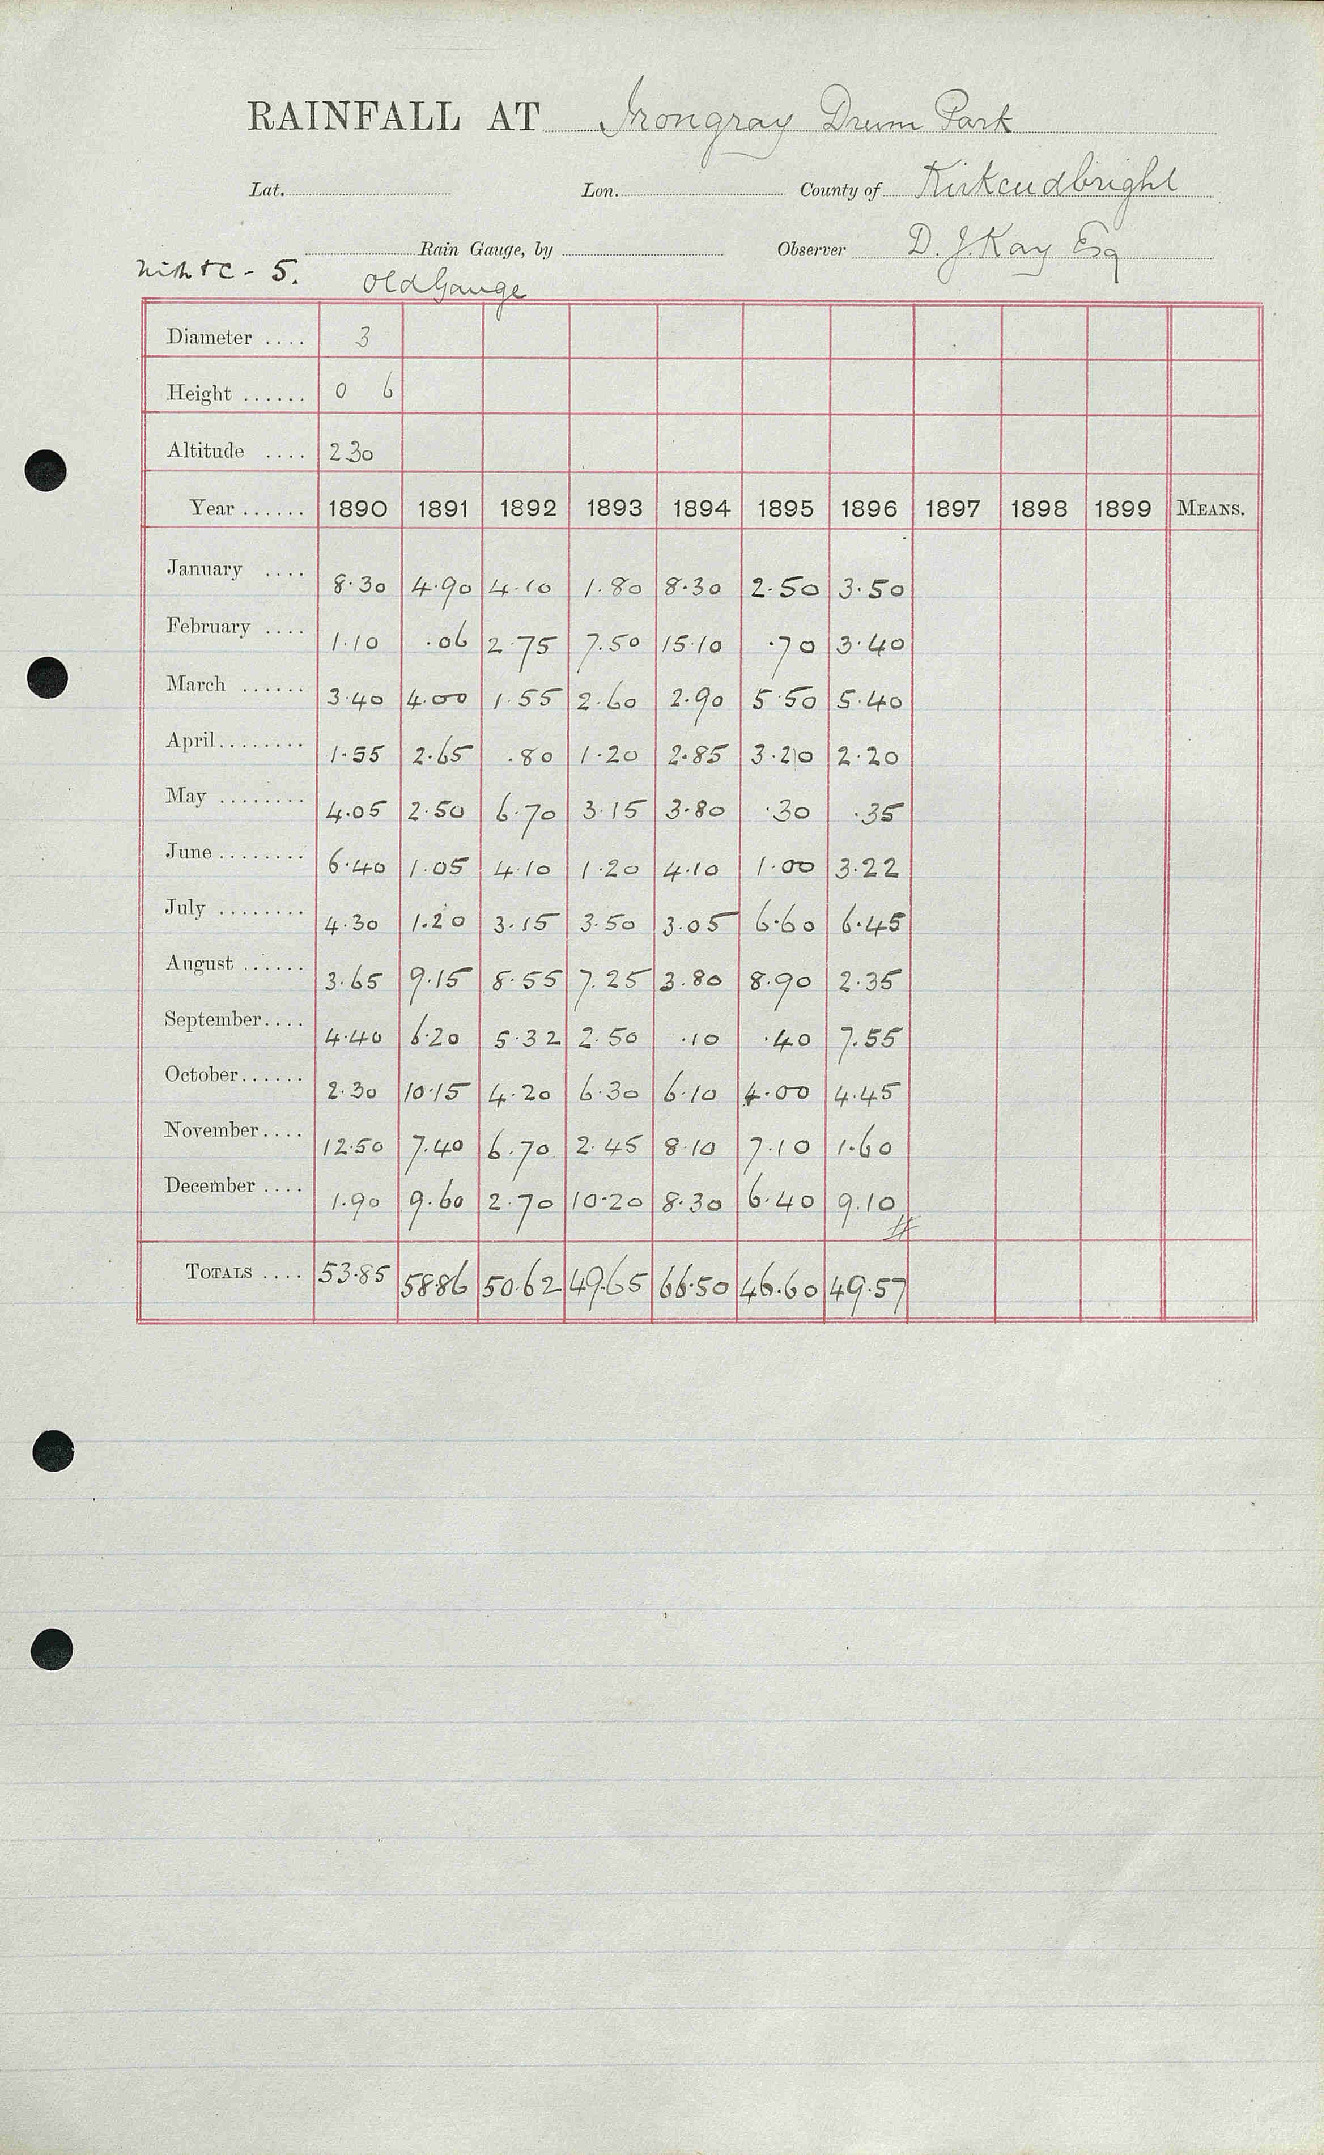 RAINFALL AT Irongray Drum Park
Lat. Lon. County of Kirkcudbright
Rain Gauge, by Observer D. J. Kay Esq
- 5. Old Gauge
Diameter .... 3
Height ...... 0 6
Altitude .... 230
Year ...... 1890 1891 1892 1893 1894 1895 1896 1897 1898 1899 MEANS.
January .... 8.30 4.90 4.10 1.80 8.30 2.50 3.50
February .... 1.10 .06 2.75 7.50 15.10 .70 3.40
March ...... 3.40 4.00 1.55 2.60 2.90 5.50 5.40
April ........ 1.55 2.65 .80 1.20 2.85 3.20 2.20
May ........ 4.05 2.50 6.70 3.15 3.80 .30 .35
June ........ 6.40 1.05 4.10 1.20 4.10 1.00 3.22
July ........ 4.30 1.20 3.15 3.50 3.05 6.60 6.45
August ...... 3.65 9.15 8.55 7.25 3.80 8.90 2.35
September.... 4.40 6.20 5.32 2.50 .10 .40 7.55
October...... 2.30 10.15 4.20 6.30 6.10 4.00 4.45
November.... 12.50 7.40 6.70 2.45 8.10 7.10 1.60
December .... 1.90 9.60 2.70 10.20 8.30 6.40 9.10
TOTALS .... 53.85 58.86 50.62 49.65 66.50 46.60 49.57